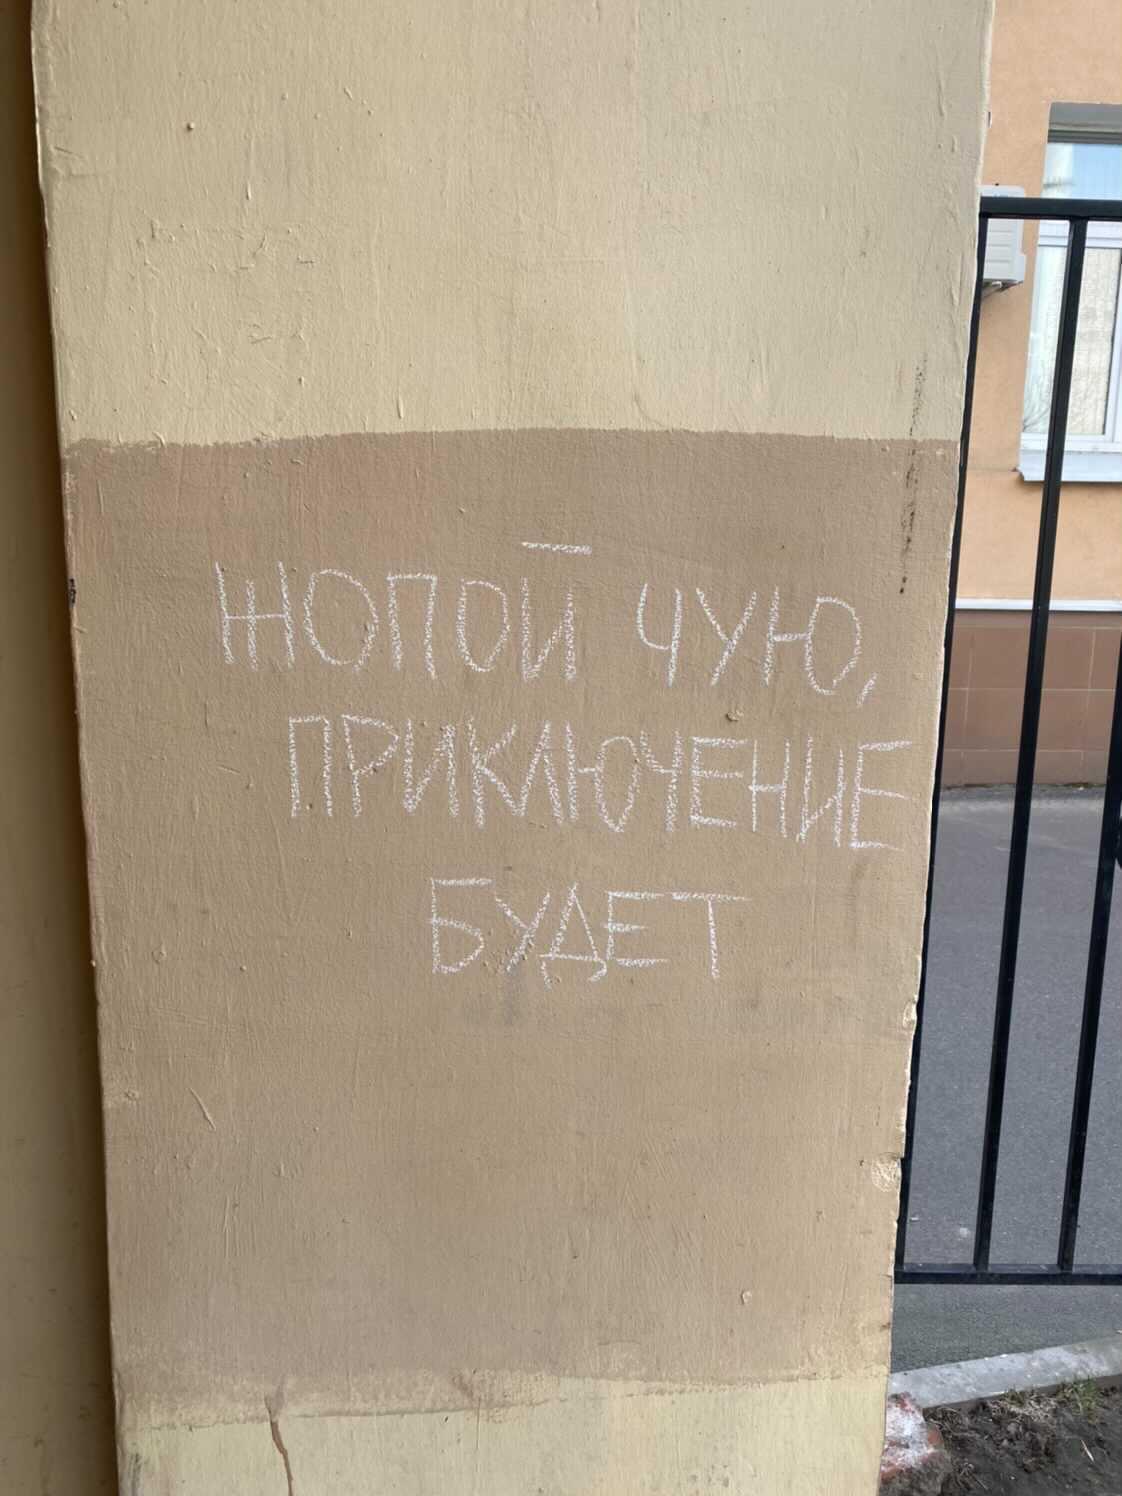 ЖОПОЙ ЧУЮ,
ПРИКЛЮЧЕНИЕ
БУДЕТ